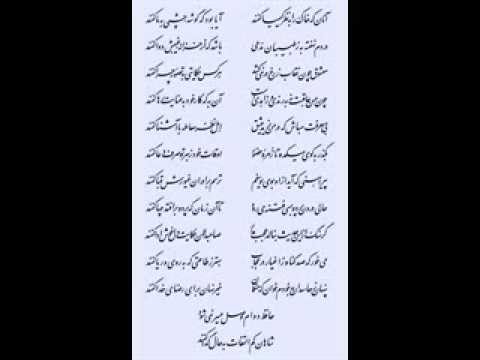 آنان که خاک را به نظر کیمیا کنند آیا بود که گوشه چشمی به ما کنند
دردم نهفته به ز طبیبان مدعی باشد که از خزانه غیبش دوا کنند
معشوق چون نقاب ز رخ در نمی کشد هر کس حکایتی به تصور چرا کنند
چون حسن عاقبت نه به رندی و زاهدیست آن به که کار خود به عنایت رها کنند
بی معرفت مباش که در من یزید عشق اهل نظر معامله با آشنا کنند
بگذر به کوی میکده تا زمره حضور اوقات خود ز بهر تو صرف دعا کنند
پیراهنی که آید از او بوی یوسفم ترسم برادران غیورش قبا کنند
حالی درون پرده بسی فتنه می رود تا آن زمان که پرده برافتد چه ها کنند
گر سنگ از این حدیث بنالد عجب مدار صاحب دلان حکایت دل خوش ادا کنند
می خور که صد گناه ز اغیار در حجاب بهتر ز طاعتی که به روی و ریا کنند
پنهان ز حاسدان به خودم خوان که منعمان خیر نهان برای رضای خدا کنند
حافظ دوام وصل میسر نمی شود
شاهان کم التفات به حال گدا کنند